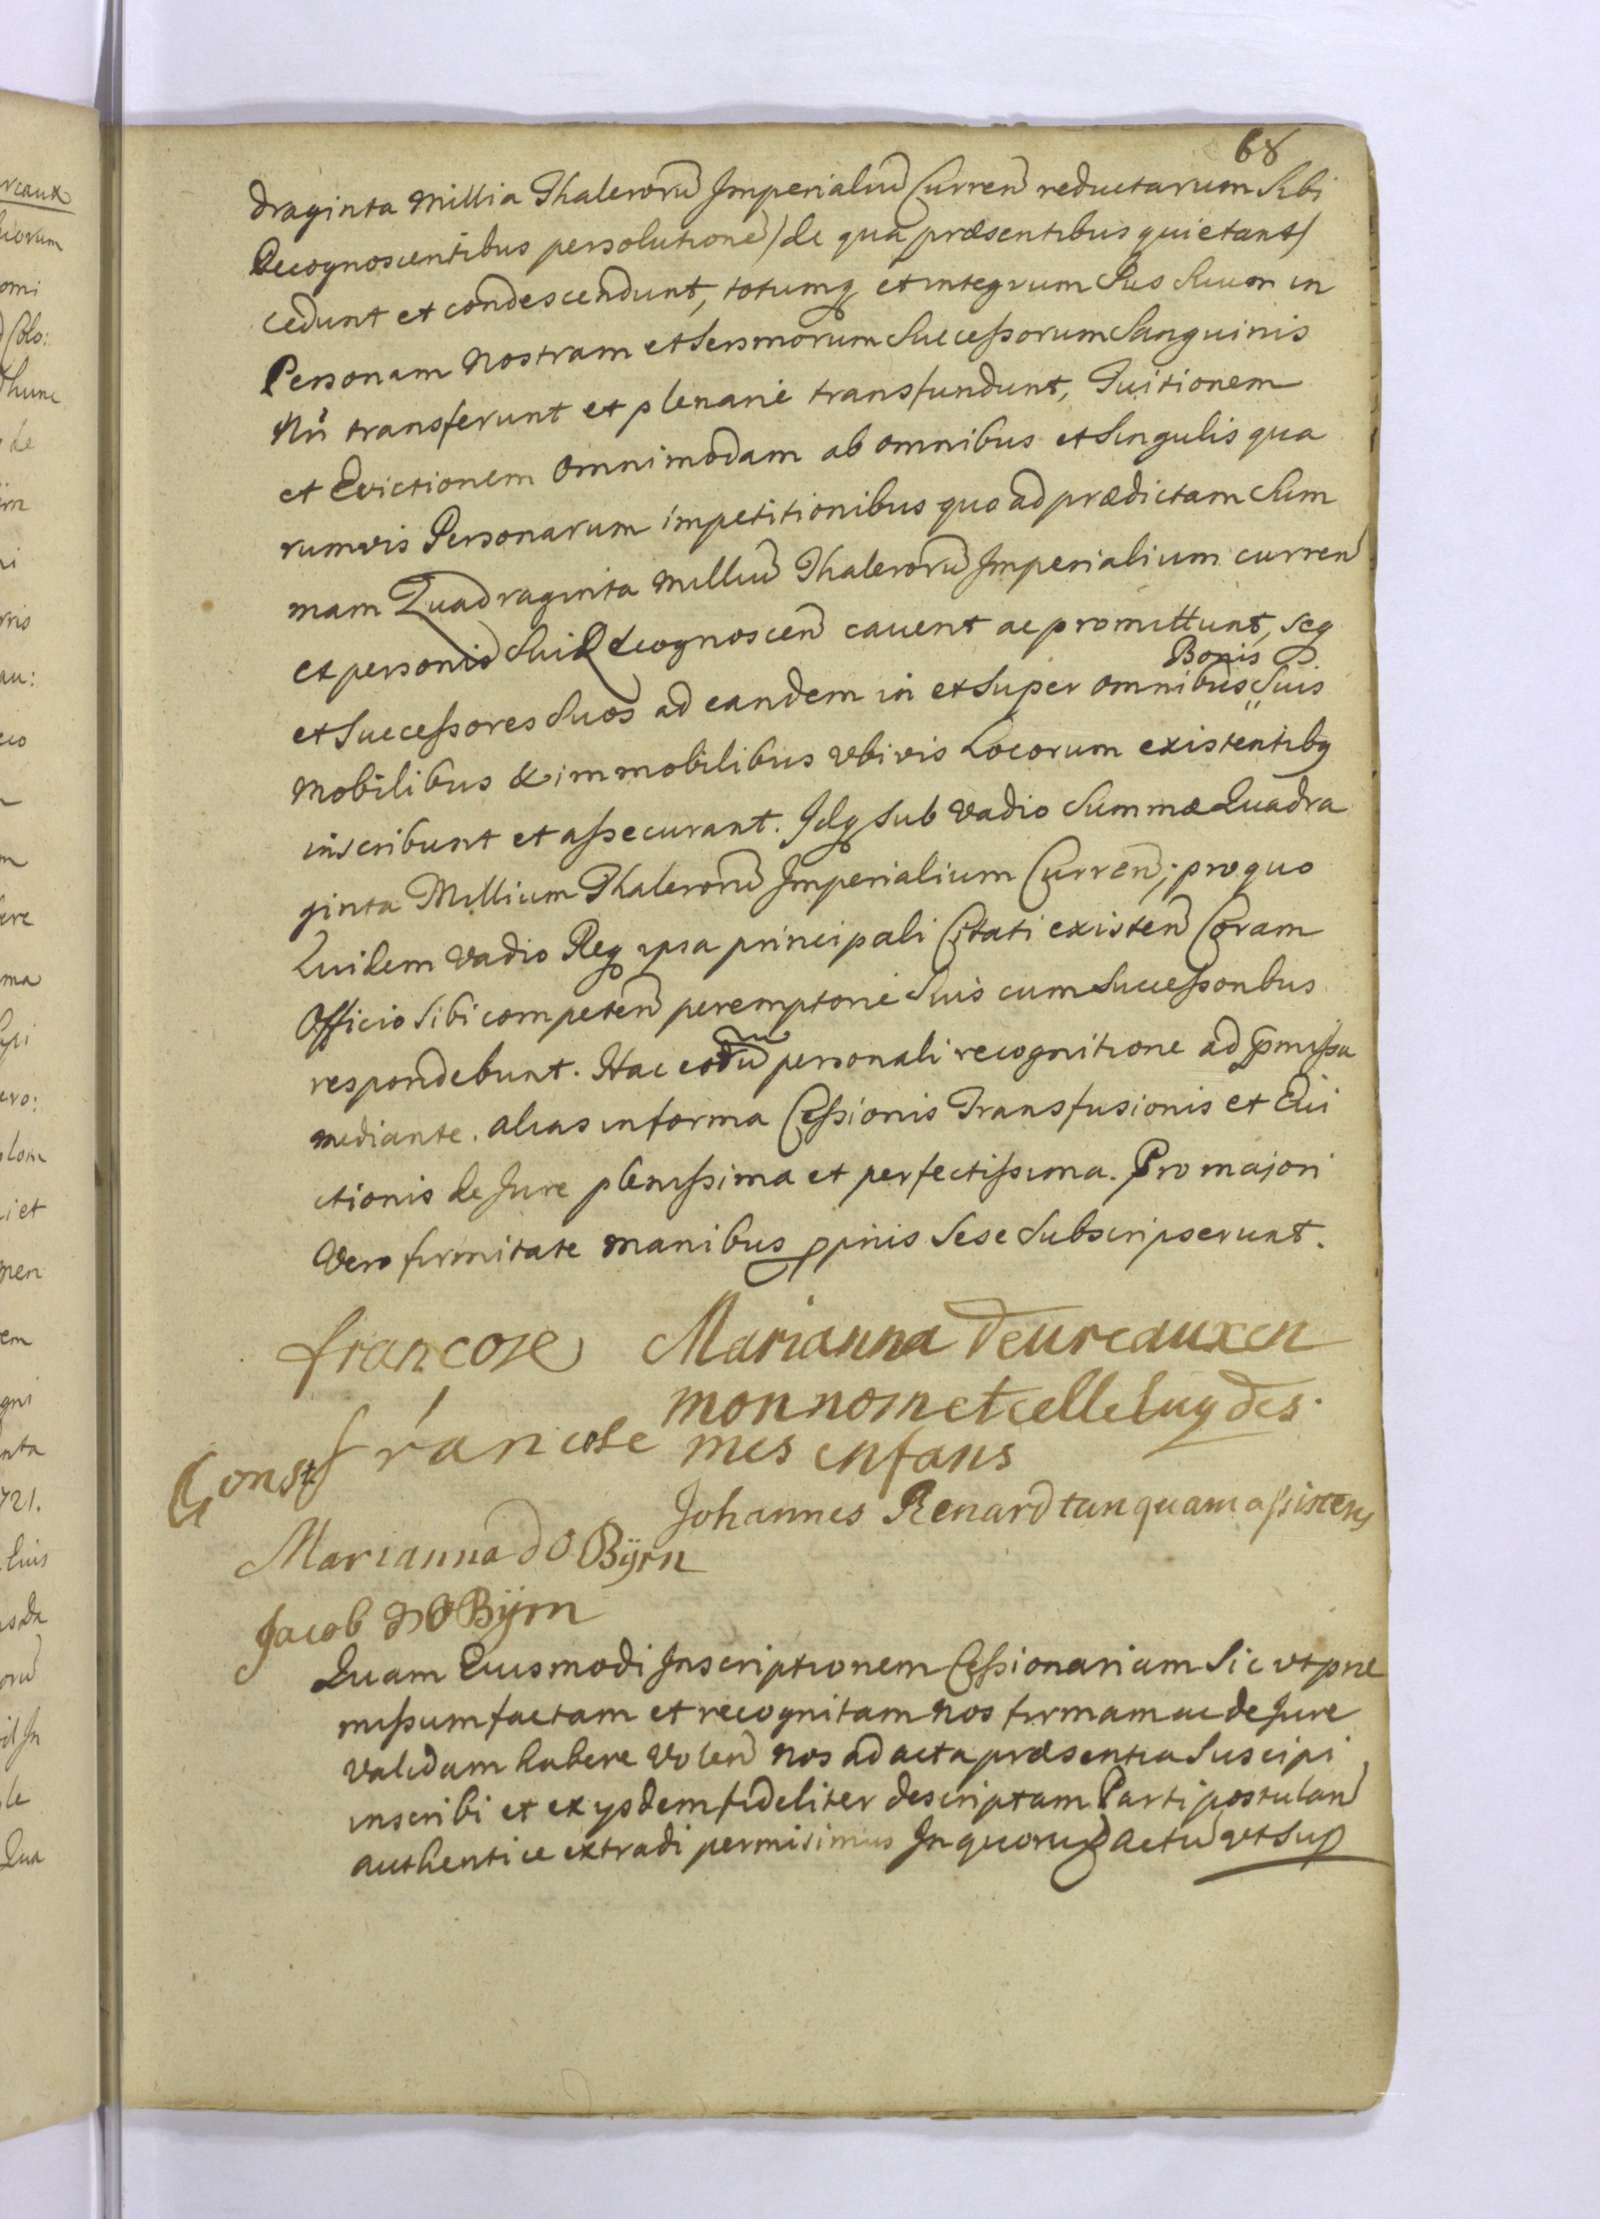 68
draginta Millia Thalerorū Imperialiū Curren̄ reductarum sibi
Recognoscentibus persolutione) de qua præsentibus quietant/
cedunt et condescendunt, totumq et integrum Jus Suum in
Personam Nostram et Sersmorum Successorum Sanguinis
Nri transferunt et plenarie transfundunt, Tuitionem
et Evictionem omnimodam ab omnibus et Singulis qua
rumvis Personarum impetitionibus quo ad prædictam Sum
mam Quadraginta Milliū Thalerorū Imperialium curren̄
et personis Sui Recognoscen̄ cavent ac promittunt, seq
Bonis
et Successores Suos ad eandem in et Super omnibus" Suis
Mobilibus & immobilibus vbivis Locorum existentibq
inscribunt et assecurant. Idq Sub Vadio Summæ Quadra
ginta Millium Thalerorū Imperialium Curren̄; pro quo
Quidem Vadio Req ipsa principali Citati existen̄ Coram
Officio Sibi competen̄ peremptorie Suis cum Successoribus
respondebunt. Hac eodū personali recognitione ad pmissa
mediante. alias in forma Cessionis Transfusionis et Evi
ctionis de Jure plenissima et perfectissima. Pro majori
Vero firmitate manibus ppriis Sese Subscripserunt.
francose Marianna Deureaux en
mon nom et celle luy des
Const francose mes enfans
Johannes Renard tanquam assistens
Marianna d O Bÿrn
Jacob d O Bÿrn
Quam Eiusmodi Inscriptionem Cessionariam Sic vt præ
missum factam et recognitam Nos firmam ac de Jure
validam habere Volen̄ Nos ad acta præsentia Suscipi
inscribi et ex ysdem fideliter descriptam Parti postulan̄
authentice extradi permisimus In quorū Actū vt Sup